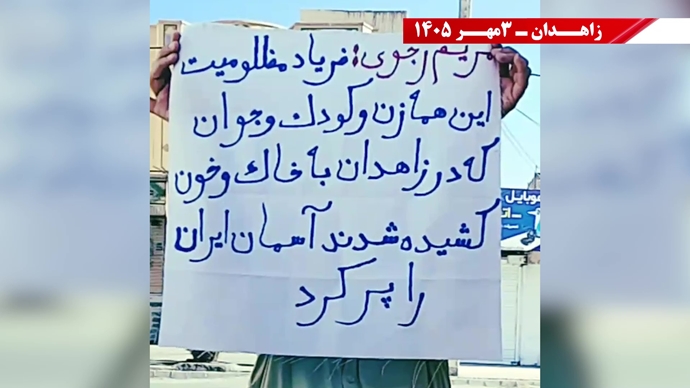 زاهـدان ــ ۳مهـر ۱۴۰۵
مریم رجوی: فریاد مظلومیت
این همه زن و کودک و جوان
که در زاهدان به خاک و خون
کشیده شدند آسمان ایران
را پر کرد
موبایل